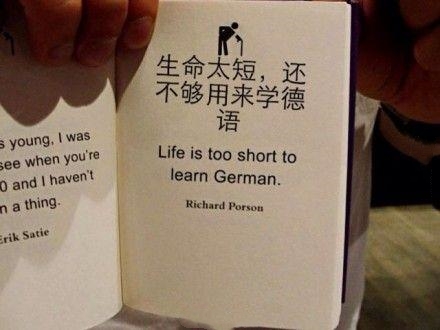 s young, I was
see when you're
0 and I haven't
n a thing.
Erik Satie
生命太短，还
不够用来学德
语
Life is too short to
learn German.
Richard Porson